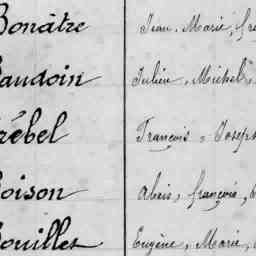 Bonâtre Jean, Marie, Fr
Baudoin Julien, Michel,
Trébel François, Joseph
Poison Alexis, françois,
Bouillet Eugène, Marie,